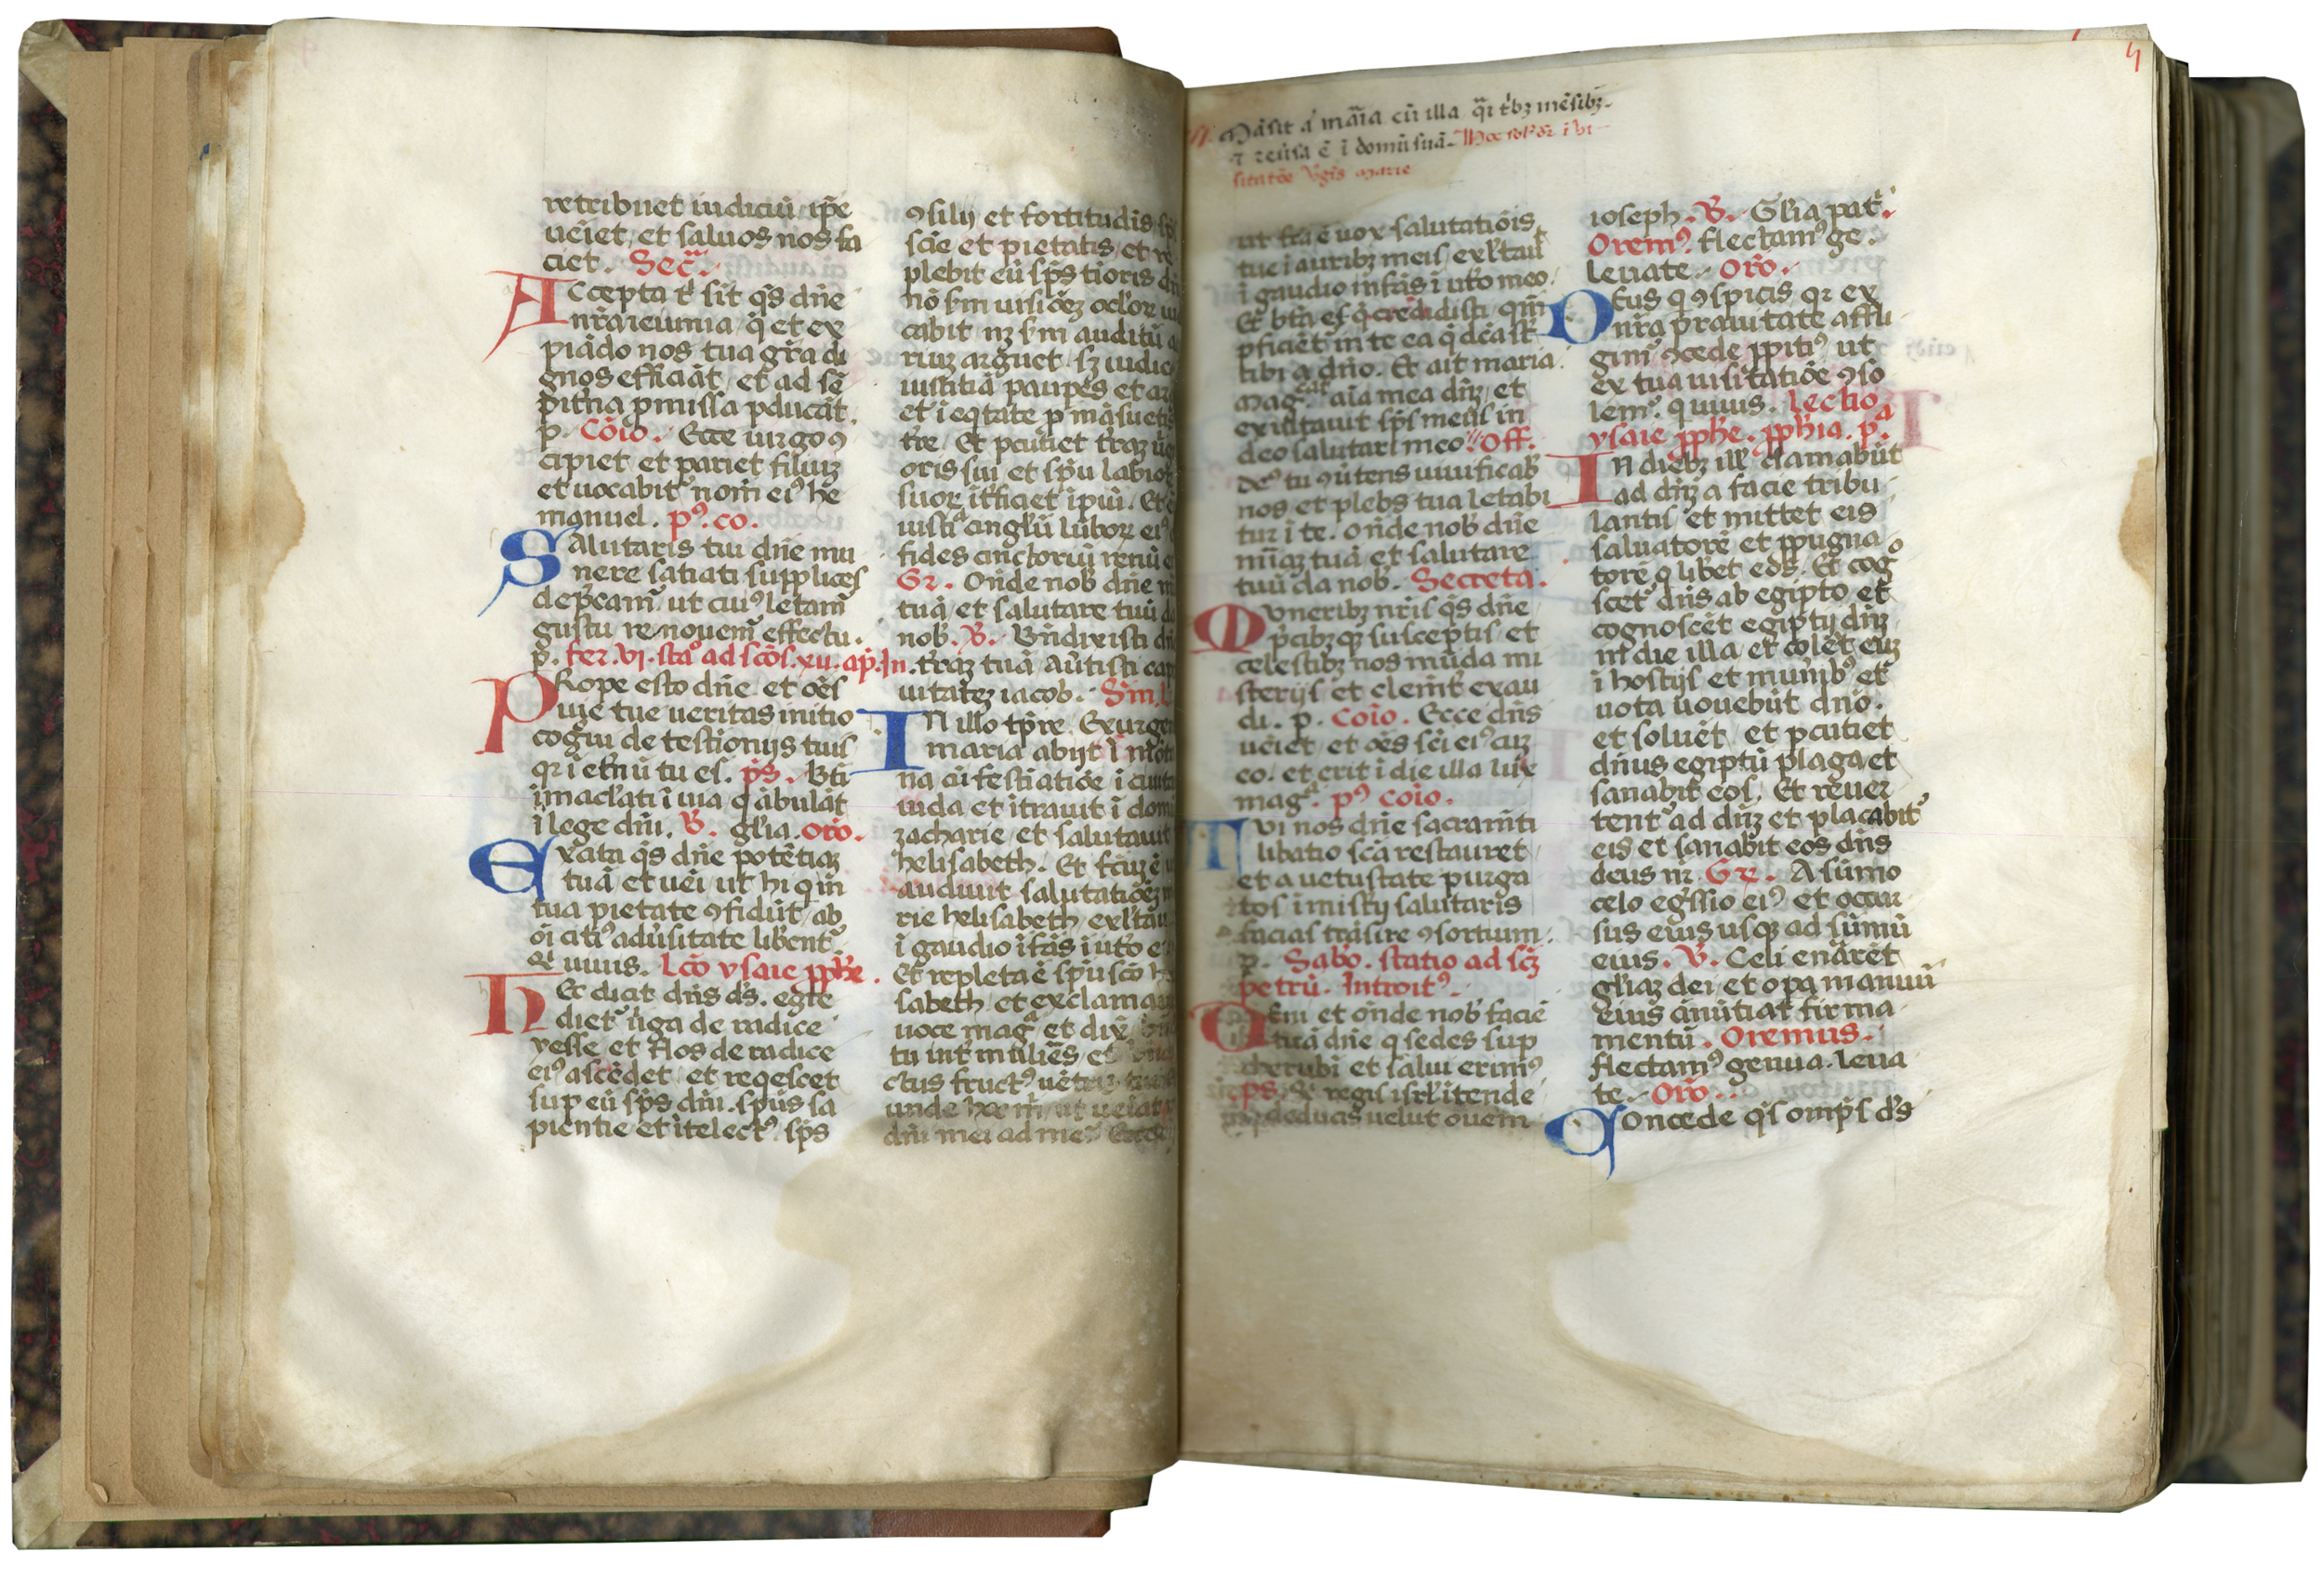 retribuet iudiciũ ip̃e
ueĩet, et saluos nos fa
ciet. Sec̃.
ACcepta t̃ sit q̃s dñe
nr̃a ieiunia, q̃ et ex
piãdo nos tua gr̃a di
gnos efficiãt, et ad sẽ
pitña pmissa pducãt.
p. Cõio. Ecce uirgo ꝯ
cipiet et pariet filiuꝫ
et uocabit᷑ nom̃ eiꝰ he
manuel. pꝰ. co.
SAlutaris tui dñe mu
nere satiati supplices
dep̃cam᷑, ut cuiꝰ letam᷑
gustu renouem᷑ effectu.
p. fer. vi. sta᷑ ad scõs. xii. ap̃. In.
PRope esto dñe et oẽs
uie tue ueritas initio
cogũi de testionijs tuis
qꝛ i etñũ tu es. p̃s. Bti
ĩmacl̃ati ĩ uia q ãbulãt
ĩ lege dñi. V. gl̃ia. oro.
Exata q̃s dñe potẽtiaꝫ
tuã et uẽi ut hi q in
tua pietate ꝯfidũt, ab
oĩ citiꝰ adũsitate libent᷑.
Qĩ uiuis. lcõ ysaie ꝓph̃e.
HEc dicit dñs ds̃. egre
diet᷑ ũga de radice
yesse, et flos de radice
eiꝰ ascẽdet, et reqescet
sup eũ sp̃s dñi. sp̃us sa
pientie et ĩtelectꝰ, sp̃s
ꝯsilij et fortitudĩs, sp̃s
scĩe et pietatis, et re
plebit eũ sp̃s tioris dñi
nõ s̃m uisiõeꝫ ocl̃oꝝ iu
cabit nꝫ s̃m auditũ a
riuꝫ arguet, sꝫ iudic
iustitiã paupẽs et ar
et i eqtate p mãsueti
tr̃e. Et pcutiet tr̃aꝫ ũg
oris sui et sp̃u labioꝝ
suoꝝ ĩtficiet ĩpiũ. Et ẽ
iusti᷑ cingl̃ũ lũboꝝ eiꝰ
fides cinctoriũ renũ e
Gr. Oñde nob̃ dñe m
tuã, et salutare tuũ da
nob̃. V. Bñdixisti dñe
tr̃aꝫ tuã, aũtisti cap
uitateꝫ iacob. Sm. L
IN illo tp̃re. Exurgen
maria abijt ĩ mõt
na cũ festiatiõe ĩ ciuita
iuda, et ĩtrauit ĩ domũ
zacharie, et salutauit
helisabeth. Et fc̃uꝫ ẽ u
audiuit salutatiõeꝫ m
rie helisabeth, exl̃tau
ĩ gaudio ĩfãs ĩ ut̃o e
Et repleta ẽ sp̃u scõ he
sabeth, et exclamauit
uoce mag᷑ et dix̃. bñ
tu int̃ mulieꝝs, et bñd
ctus fructꝰ uẽtris tui
unde hoc m̃, ut ueĩat
dñi mei ad me. Ecce
Mãsit ã mãia cũ illa q̃i tʼbꝫ mẽsibꝫ
ꝛ reũsa ẽ ĩ domũ suã. Hoc sol᷑ d᷑r ĩ ui
sitatõe V̓gĩs Marie
ut fc̃a ẽ uox salutatiõis
tue ĩ auribꝫ meis, exl̃tau
ĩ gaudio infãs ĩ ut̃o meo.
Et bt̃a es q̃ credidisti, qm̃
pficiẽt in te ea q̃ dc̃a sr̃
tibi a dño. Et ait maria.
Mag᷑cat aĩa mea dñꝫ, et
exultauit sp̃s meus in
deo salutari meo. Off.
deꝰ tu ꝯũtens uiuificab̃
nos et plebs tua letabi
tur ĩ te. oñde nob̃ dñe
mĩaꝫ tuã et salutare
tuũ da nob̃. Secreta.
MVneribꝫ nr̃is q̃s dñe
p̃cibꝫqꝫ susceptis, et
celestibꝫ nos mũda mi
sterijs et clemt̃ exau
di. p. Coĩo. Ecce dñs
ueĩet, et oẽs sc̃i eiꝰ cuꝫ
eo. et erit ĩ die illa lux
mag᷑. pꝰ coĩo.
TVi nos dñe sacram̃ti
libatio sc̃a restauret
et a uetustate purga
tos ĩ mistĩj salutaris
facias trãsire ꝯsortium.
p. Sabo. statio ad scꝫ
petrũ. Introitꝰ.
VEni et oñde nob̃ faciẽ
tuã dñe q sedes sup
cherubĩ et salui erimꝰ
ps. Qi regis isrl̃ ĩtende
qui deducis uelut ouem
ioseph. V. Gl̃ia pat᷑.
Oremꝰ. flectamꝰ ge.
leuate. Oro.
DEus q ꝯspicis qꝛ ex
nr̃a prauitate affli
gim᷑, ꝯcede ꝓpitiꝰ, ut
ex tua uisitatiõe ꝯso
lem᷑. q uiuis. lectio
ysaie ꝓph̃e. ꝓph̃ia. p᷑.
IN diebꝫ ill̃ clamabũt
ad dñꝫ a facie tribu
lantis, et mittet eis
saluatorẽ et ꝓpugna
torẽ q libet eos. Et cog
scet᷑ dñs ab egipto, et
cognoscẽt egiptij dñꝫ
in die illa, et colẽt euꝫ
ĩ hostijs et munĩbꝰ, et
uota uouebũt dño.
et soluẽt, et pcutiet
dñus egiptũ plaga, et
sanabit eos. Et reuer
tent᷑ ad dñꝫ et placabit᷑
eis et sanabit eos dñs
deus nr̃. Gr. A sũmo
celo eg̃ssio eiꝰ et occur
sus eius usqꝫ ad sũmũ
eius. V. Celi enãrẽt
gl̃iaꝫ dei et opa manuũ
eius ãnũtiat firma
mentũ. Oremus.
flectamꝰ genua. leua
te. Oro.
COncede q̃s omp̃s ds̃